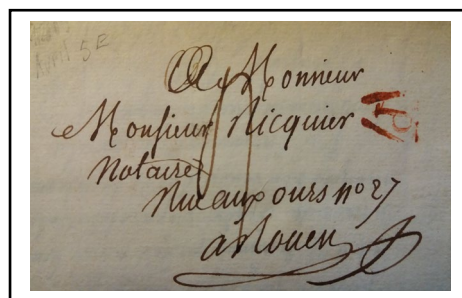 Avril 5E
A Monsieur
Monsieur Nicquier
Notaire
Rue aux ours no 27
a Rouen